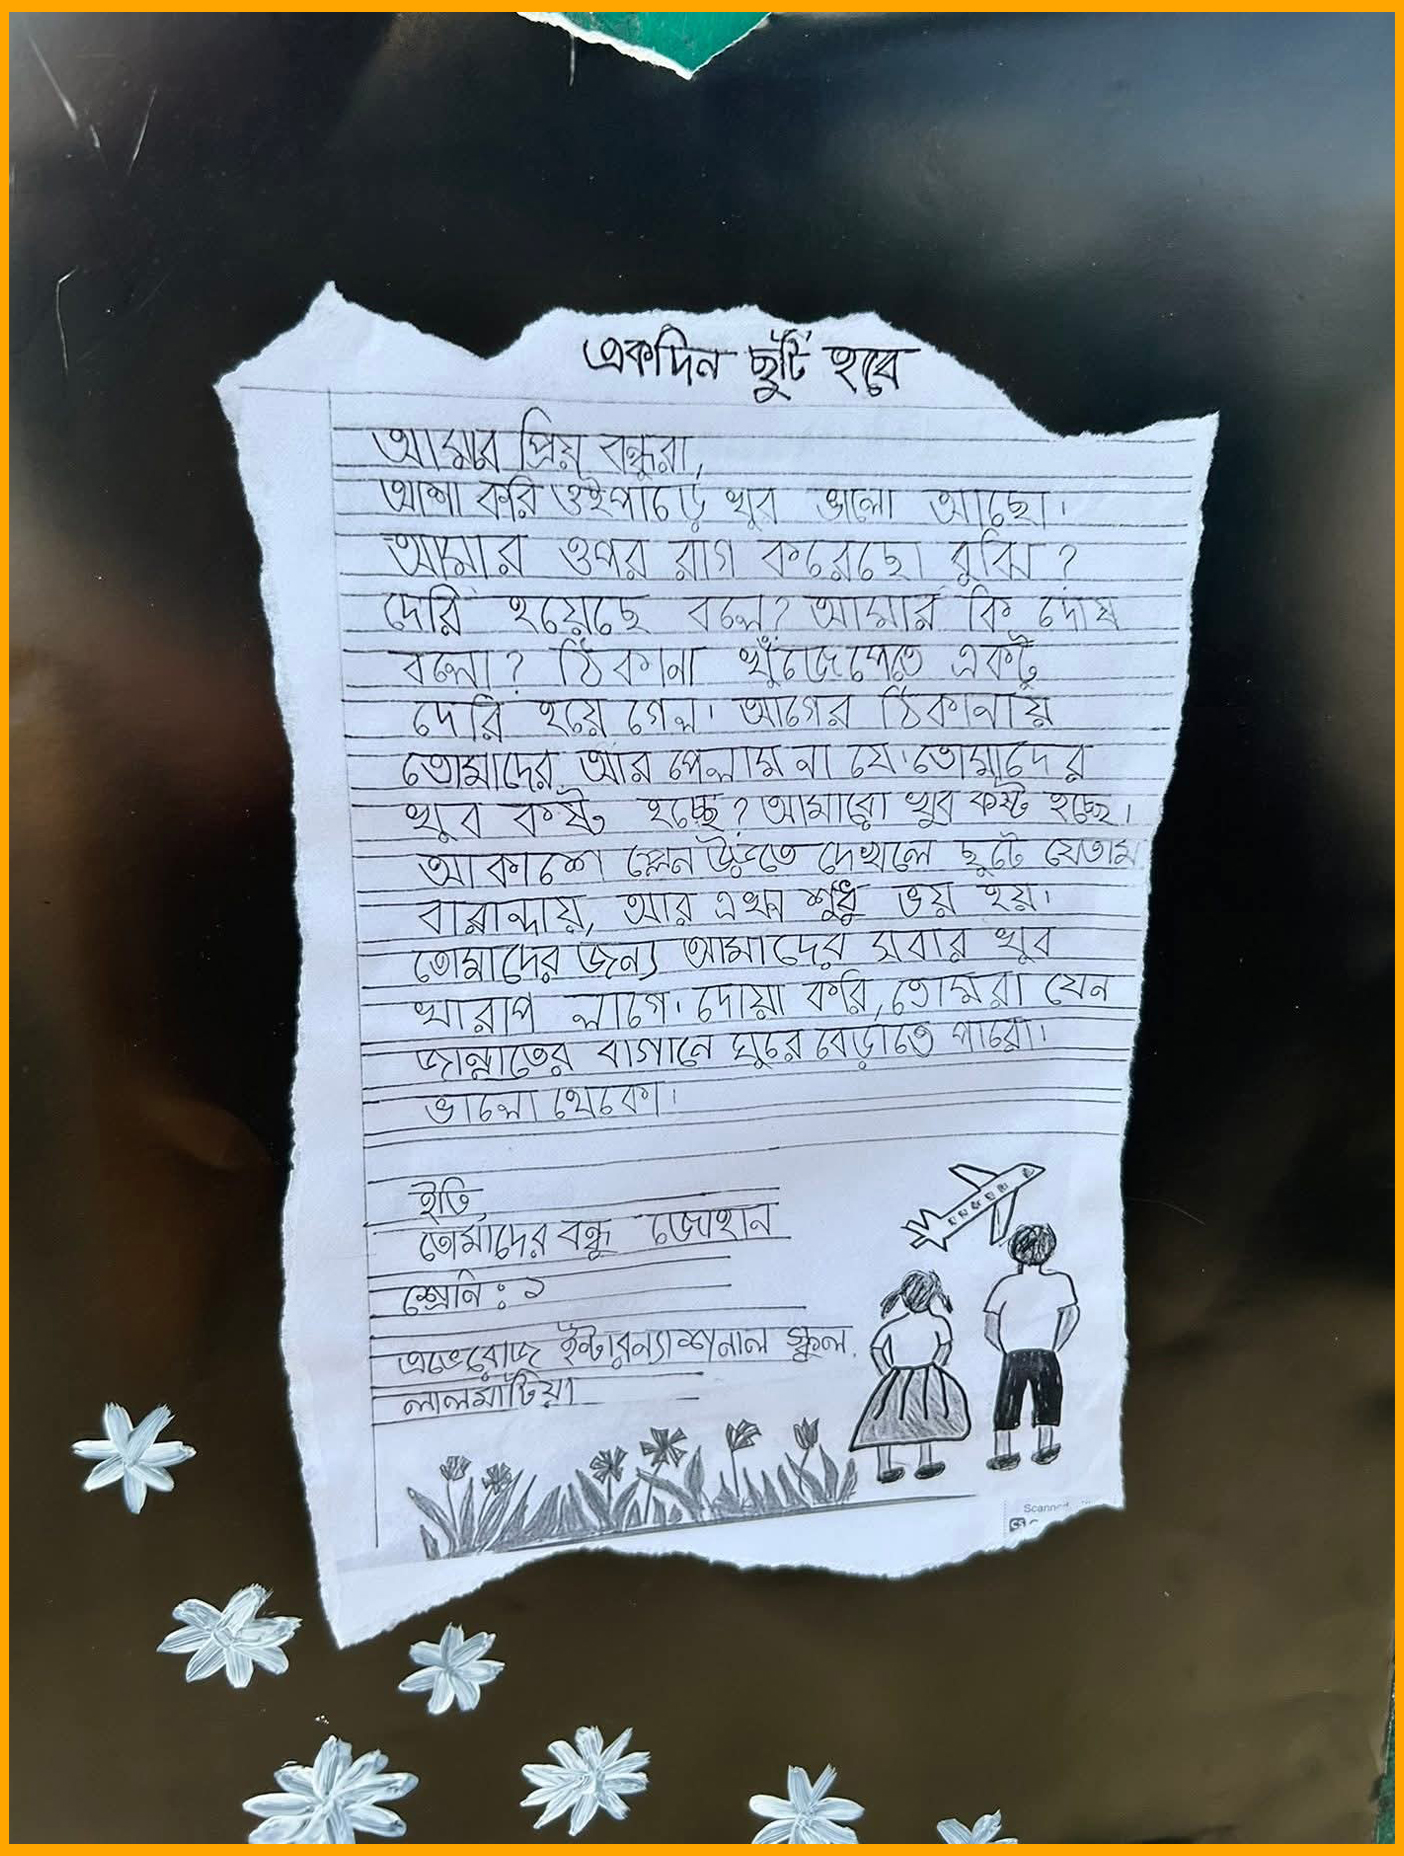 একদিন ছুটি হবে
আমার প্রিয় বন্ধুরা,
আশা করি ওইপাড়ে খুব ভালো আছো।
আমার ওপর রাগ করেছো বুঝি?
দেরি হয়েছে বলে? আমার কি দোষ
বলো? ঠিকানা খুঁজেপেতে একটু
দেরি হয়ে গেল। আগের ঠিকানায়
তোমাদের আর পেলাম না যে। তোমাদের
খুব কষ্ট হচ্ছে? আমারো খুব কষ্ট হচ্ছে।
আকাশে প্লেন উড়তে দেখলে ছুটে যেতাম
বারান্দায়, আর এখন শুধু ভয় হয়।
তোমাদের জন্য আমাদের সবার খুব
খারাপ লাগে। দোয়া করি, তোমরা যেন
জান্নাতের বাগানে ঘুরে বেড়াতে পারো।
ভালো থেকো।
ইতি,
তোমাদের বন্ধু জোহান
শ্রেনি: ১
এভেরোজ ইন্টারন্যাশনাল স্কুল,
লালমাটিয়া